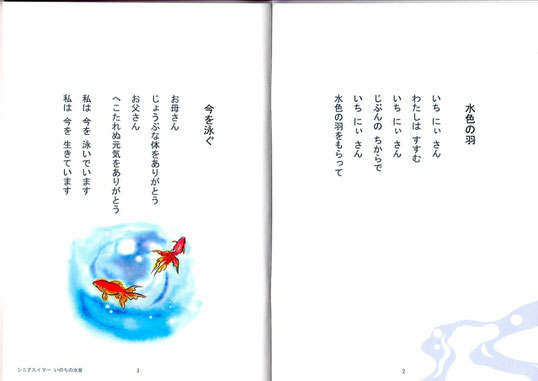 水色の羽
いち にぃ さん
わたしは すすむ
いち にぃ さん
じぶんの ちからで
いち にぃ さん
水色の羽をもらって
2
今を泳ぐ
お母さん
じょうぶな体をありがとう
お父さん
へこたれぬ元気をありがとう
私は 今を 泳いでいます
私は 今を 生きています
3
シニアスイマー いのちの水着